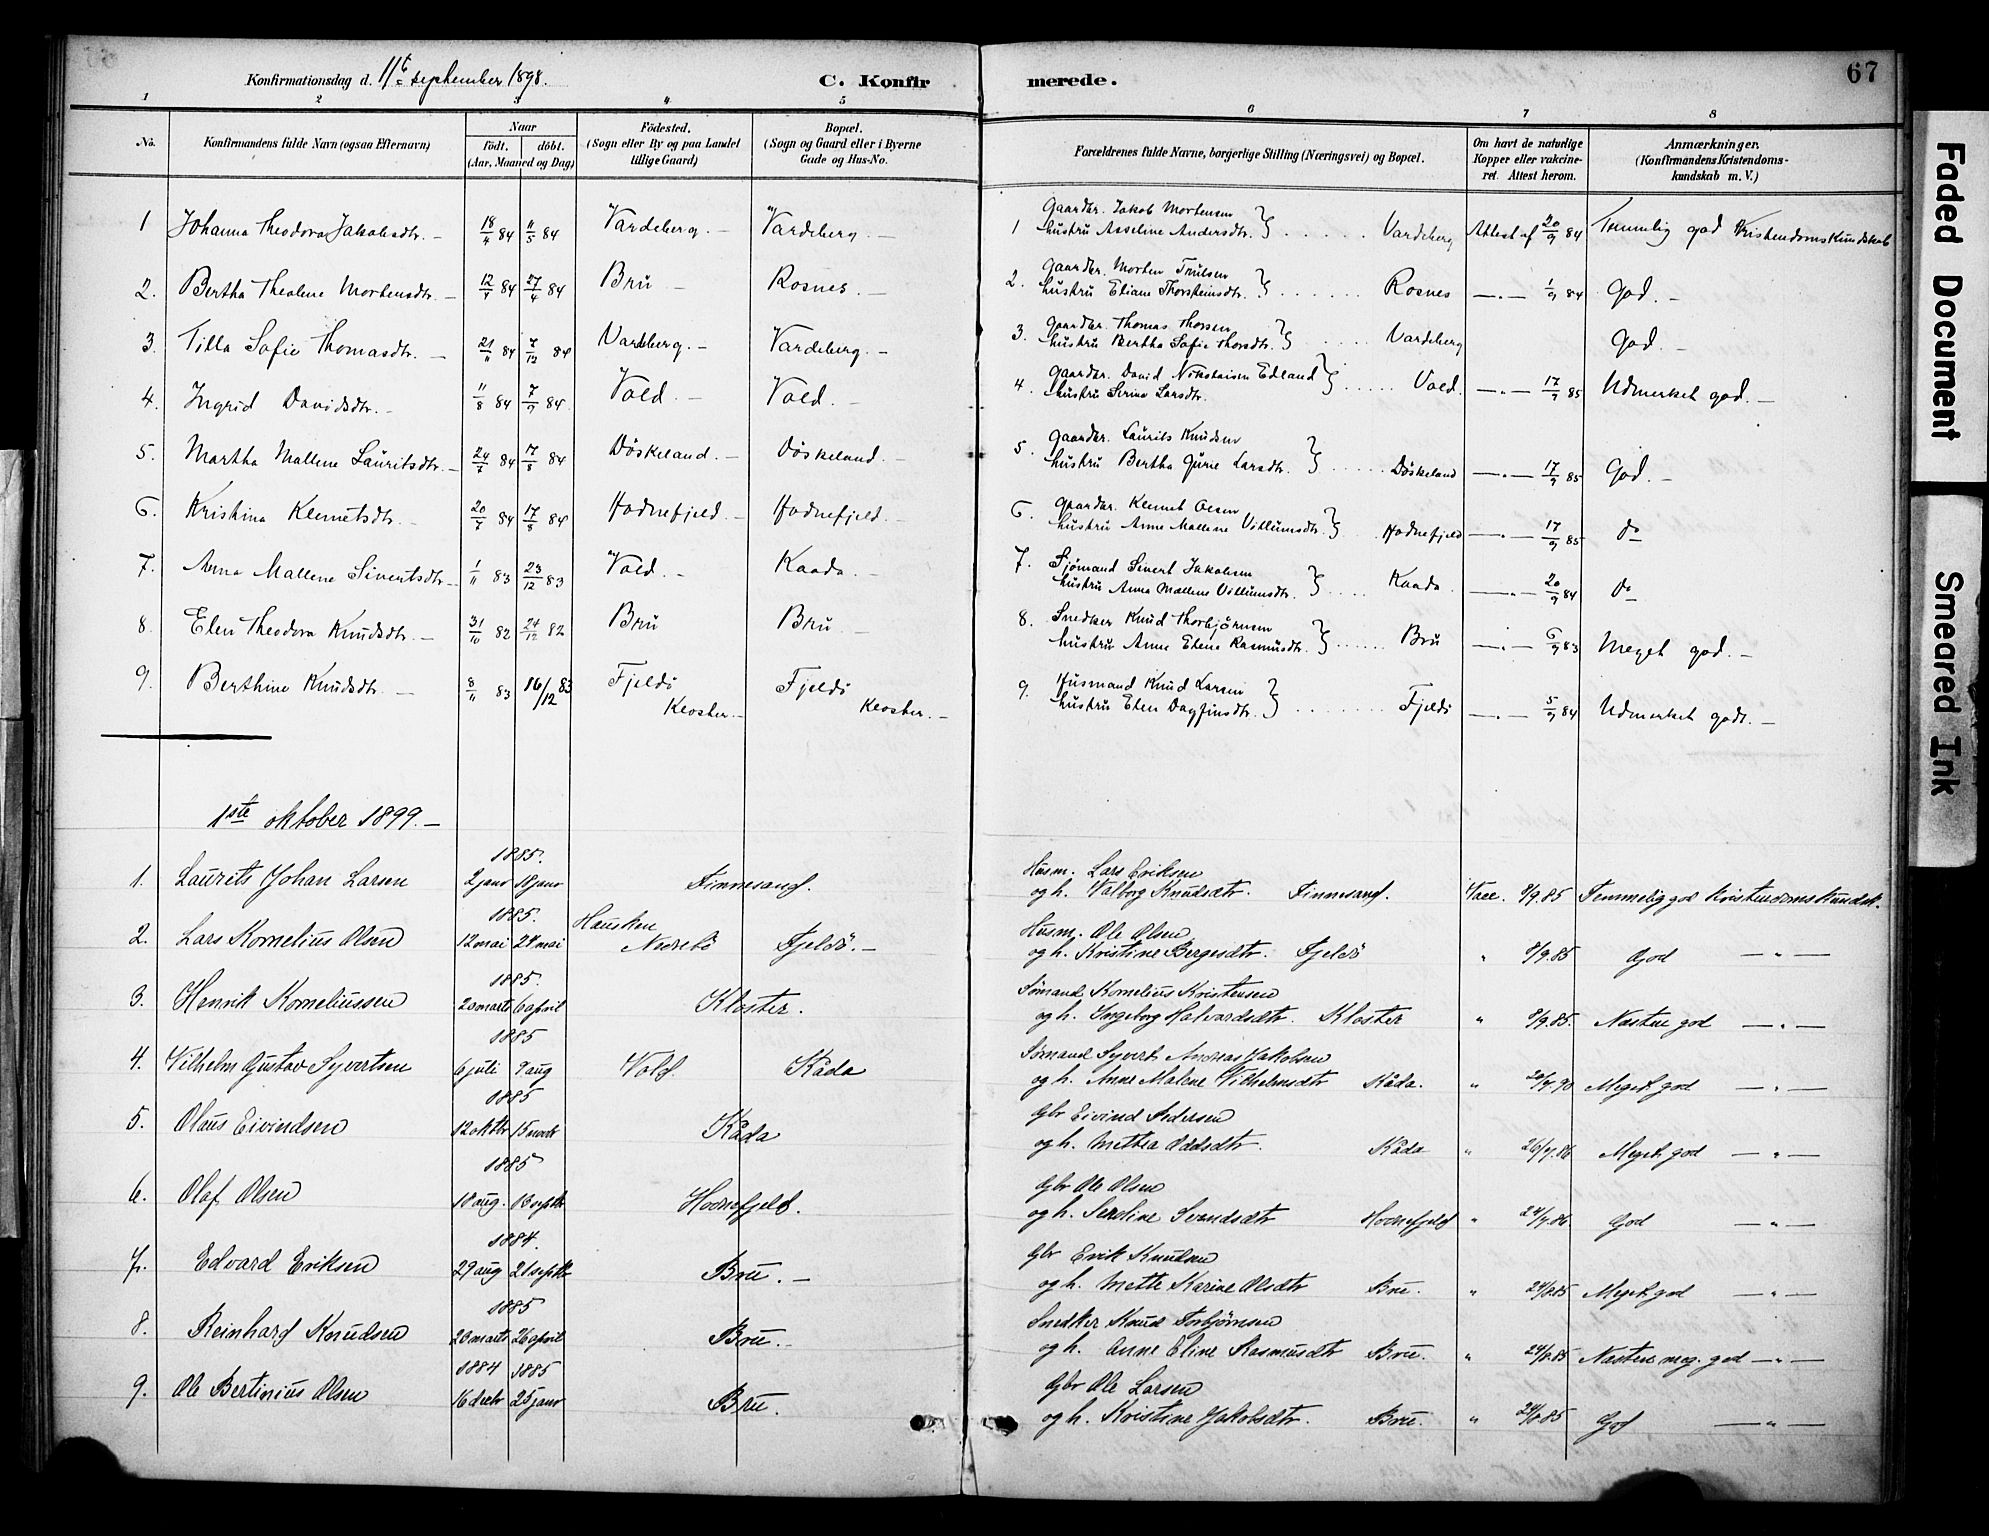 Konfirmationsdag d. 11te september 1898.
C. Konfirmerede.
67
1 2 3 4 5 6 7 8
No.
Konfirmandens fulde Navn (ogsaa Efternavn)
Naar
födt. döbt.
(Aar, Maaned og Dag)
Födested.
(Sogn eller By og paa Landet
tillige Gaard)
Bopæl.
(Sogn og Gaard eller i Byerne
Gade og Hus-No.
Forældrenes fulde Navne, borgerlige Stilling (Næringsvei) og Bopæl.
Om havt de naturlige
Kopper eller vakcine-
ret. Attest herom.
Anmærkninger.
(Konfirmandens Kristendoms-
kundskab m. V.)
1 Johanna Theodora Jakobsdtr. — 18/4 84 11/5 84 Vardeberg. — Vardeberg. — 1 Gaardbr. Jakob Mortensen
hustru Asseline Andersdtr. } Vardeberg Attest af 20/9 84 Temmelig god Kristendomskundskab
2. Bertha Thealene Mortensdtr. — 12/4 84 27/4 84 Bru — Rosnes. — 2. Gaardbr. Morten Trulsen
hustru Eliane Thorsteinsdtr. } Rosnes —"— 1/9 84 God. —
3. Tilla Sofie Thomasdtr. — 21/11 84 7/12 84 Vardeberg. — Vardeberg. — 3. Gaardbr. Thomas Thorsen
hustru Bertha Sofie Thorsdtr. } Vardeberg God. —
4. Ingrid Davidsdtr. — 11/8 84 7/9 84 Vold. — Vold. — 4. Gaardbr. David Nikolaisen Edland
hustru Serine Larsdtr. } Vold. —"— 17/9 85 Udmerket god. —
5. Martha Mallene Lauritsdtr. — 24/7 84 17/8 84 Döskeland. — Döskeland. — 5. Gaardbr. Laurits Knudsen
hustru Bertha Gurie Larsdtr. } Döskeland —"— 17/9 85 God. —
6. Kristina Klemetsdtr. — 20/7 84 17/8 84 Hodnefjeld. — Hodnefjeld. — 6. Gaardbr. Klemet Olsen
hustru Anne Mallene Villumsdtr. } Hodnefjeld —"— 17/9 85 do
7. Anna Mallene Sivertsdtr. — 1/11 83 23/12 83 Vold. — Kaada. — 7. Sjömand Sivert Jakobsen
hustru Anna Mallene Villumsdtr. } Kaada. —"— 20/9 84 do
8. Elen Theodora Knudsdtr. — 31/10 82 24/12 82 Bru Bru. — 8. Snedker Knud Thorbjörnsen
hustru Anne Elene Rasmusdtr. } Bru —"— 6/9 83 Meget god. —
9. Berthine Knudsdtr. — 8/11 83 16/12 83 Fjeldö Kloster. — Fjeldö Kloster. — 9. Husmand Knud Larsen
hustru Elen Dagfinsdtr. } Fjeldö —"— 5/9 84 Udmerket godt. —
1ste oktober 1899. —
1885.
1. Laurits Johan Larsen 2 janr 18 janr Finnesand. Husm. Lars Eriksen
og h. Valborg Knudsdtr. Finnesand. Vacc. 8/9.85 Temmelig god Kristendomskundsk.
1885.
2. Lars Kornelius Olsen 12 mai 24 mai Hausken Nedrebö Fjeldö. — Husm. Ole Olsen
og h. Kristine Bergesdtr. Fjeldö " 8/9.85 God —"—
1885.
3. Henrik Korneliussen 20 marts 6 april Kloster. Sömand Kornelius Kristensen
og h. Ingeborg Halvardsdtr. Kloster " 8/9.85. Næsten god —"—
1885
4. Vilhelm Gustav Syvertsen 6 juli 9 aug Vold. Kåda Sömand Syvert Andreas Jakobsen
og h. Anne Malene Vilhelmsdtr Kåda. " Meget god —"—
1885
5. Olaus Eivindsen 12 oktbr 15 novbr Kåda Gbr Eivind Pedersen
og h. Mettea Oddsdtr. Kåda " 26/7.86 Meget god —"—
1885
6. Olaf Olsen 18 aug. 13 septbr Hodnefjeld. Gbr Ole Olsen
og h. Serline Svendsdtr Hodnefjeld " 24/7.86 God —"—
1884.
7. Edvard Eriksen 29 aug 21 septbr Bru. — Gbr Erik Knudsen
og h. Mette Karine Olsdtr Bru. " 24/8.85 Meget god —"—
1885
8. Reinhard Knudsen 23 marts 26 april Bru. Snedker Knud Torbjörnsen
og h. Anne Eline Rasmusdtr Bru. " 24/8.85 Næsten meg. god —"—
1884 1885
9. Ole Bertinius Olsen 16 decbr 25 janr Bru. Gbr Ole Larsen
og h. Kristine Jakobsdtr. Bru. " 24/8.85 God —"—
Faded Document
Smeared Ink